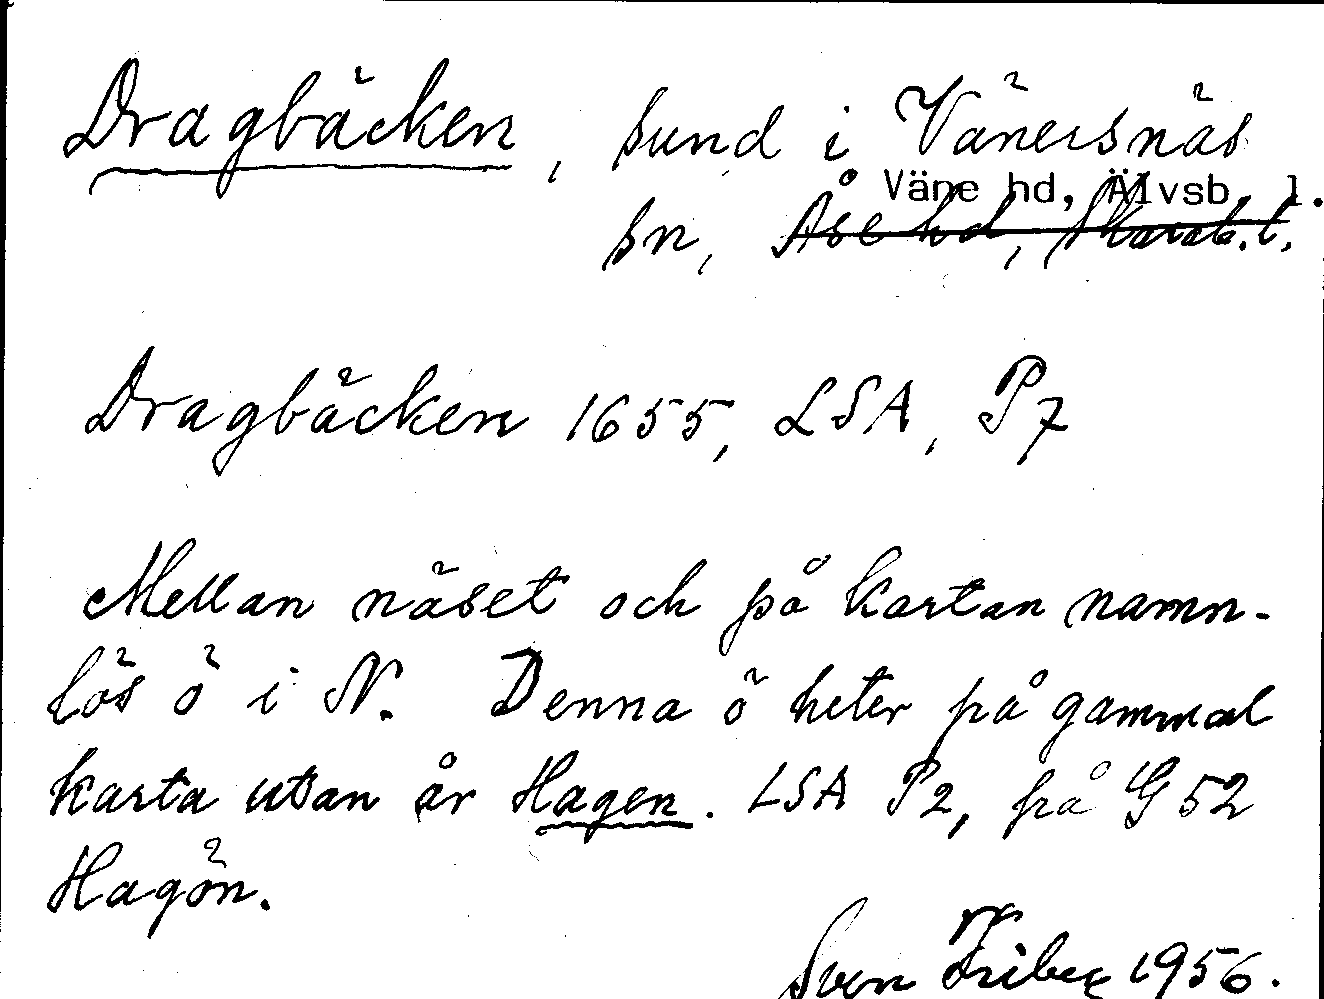 Dragbäcken, sund i Vänersnäs
Väne hd, Älvsb. l.
sn, Åse hd, Skarab. l.
Dragbäcken 1655, LSA, P7
Mellan näset och på kartan namn-
lös ö i N. Denna ö heter på gammal
karta utan år Hagen. LSA P2, på G52
Hagön.
Sven Friberg 1956.